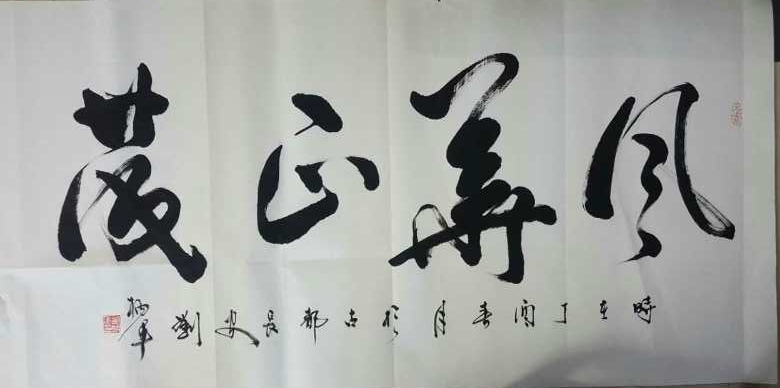 風華正茂
時在丁酉春月於古都長安劉
炳軍